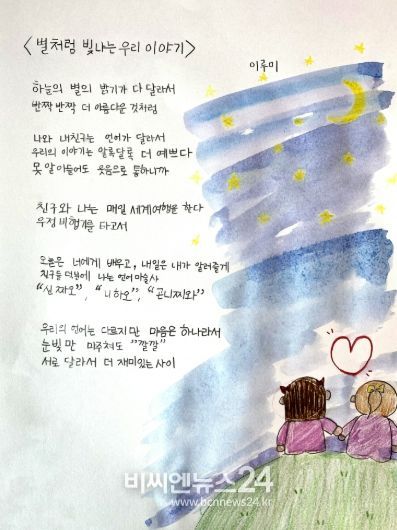 <별처럼 빛나는 우리 이야기>
이루미
하늘의 별의 밝기가 다 달라서
반짝 반짝 더 아름다운 것처럼
나와 내친구는 언어가 달라서
우리의 이야기는 알록달록 더 예쁘다
못 알아들어도 웃음으로 통하니까
친구와 나는 매일 세계여행을 한다
우정 비행기를 타고서
오늘은 너에게 배우고, 내일은 내가 알려줄게
친구들 덕분에 나는 언어마술사
"신짜오", "니하오", "곤니찌와"
우리의 언어는 다르지만 마음은 하나라서
눈빛만 마주쳐도 "깔깔"
서로 달라서 더 재미있는 사이
비씨엔뉴스24
www.bcnnews24.kr